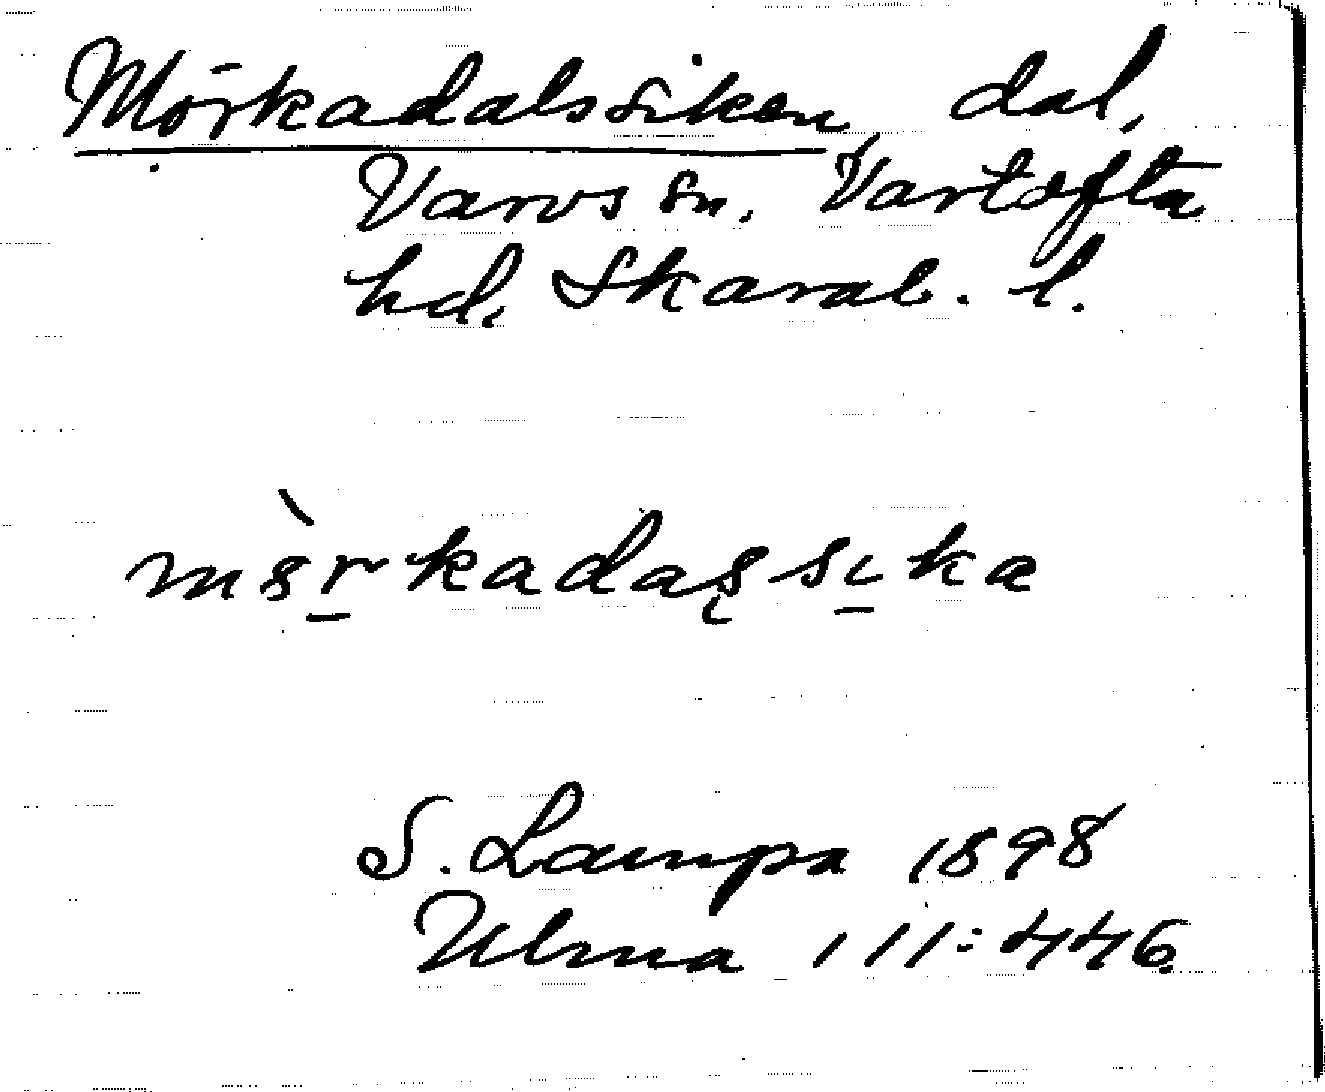 Mörkadalssiken, dal,
Varvs sn. Vartofta
hd. Skarab. l.
S. Lampa 1898
Ulma 111:446.